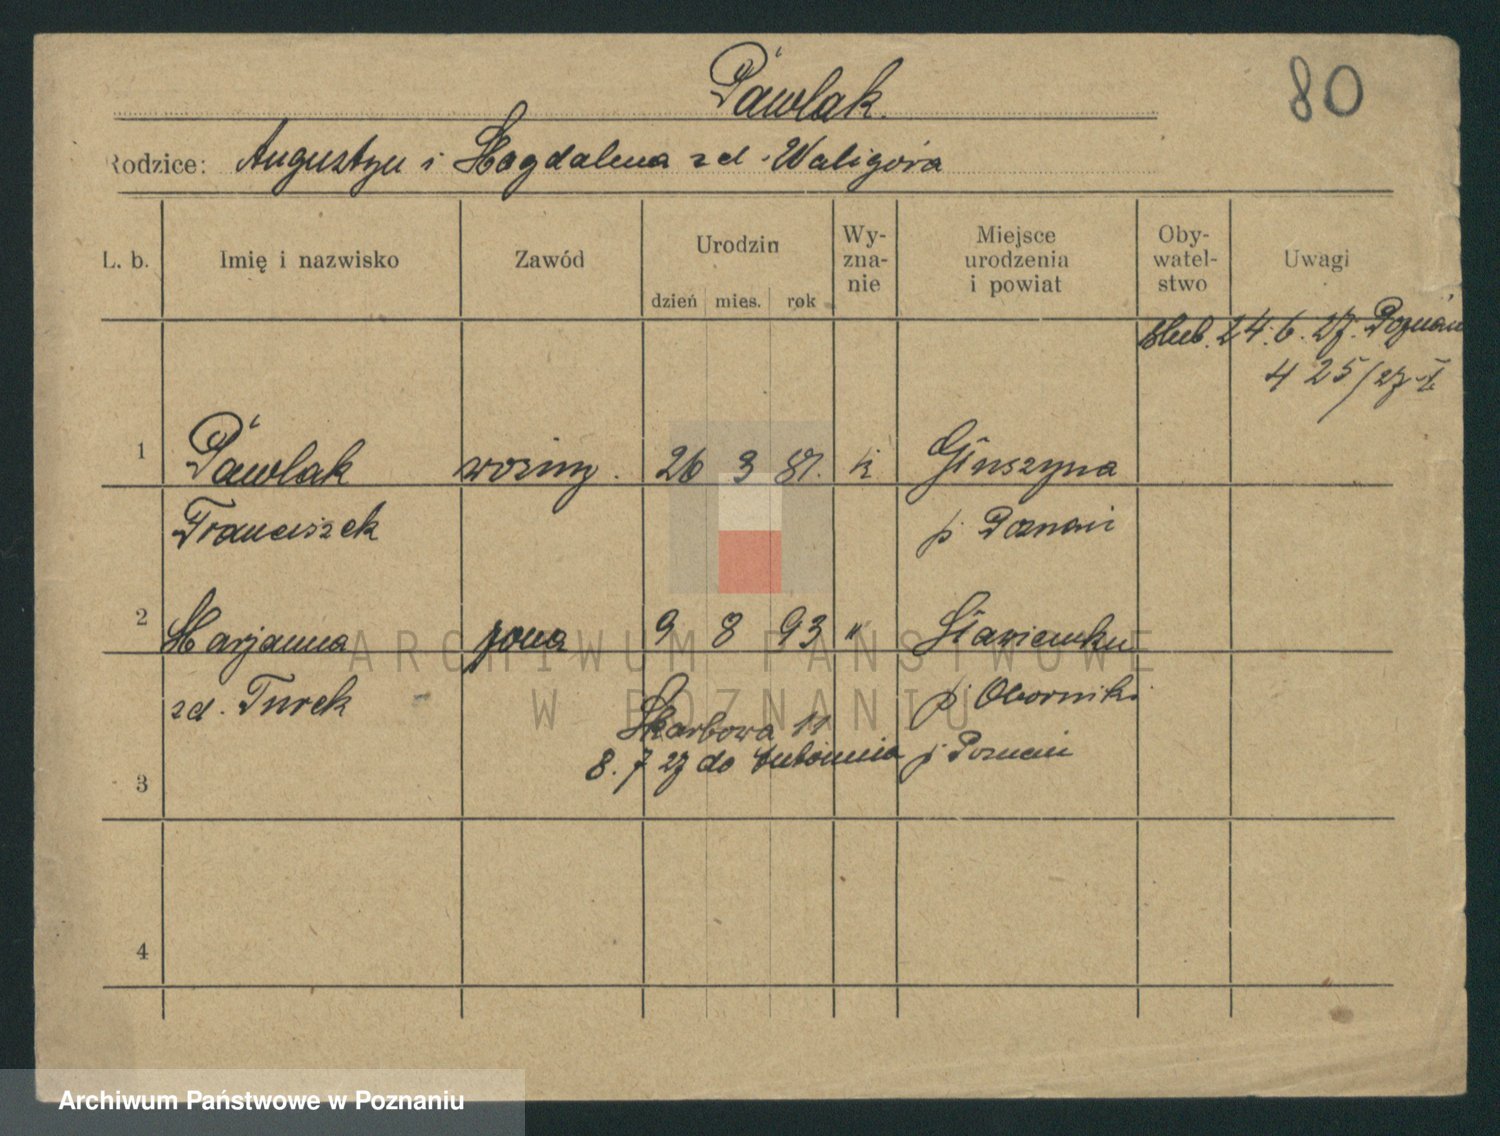 Pawlak.
80
Rodzice: Augustyn i Magdalena zd. Waligóra
L. b.
Imię i nazwisko
Zawód
Urodzin
dzień mies. rok
Wy-
zna-
nie
Miejsce
urodzenia
i powiat
Oby-
watel-
stwo
Uwagi
ślub. 24.6.27. Poznań
425/27
1 Pawlak woźny. 26 3 87. k
Franciszek p Poznań
2 Marjanna żona 9 8 93 "
zd. Turek p Oborniki
Skarbowa 11
8.7 27 do p Poznań
3
4
ARCHIWUM PAŃSTWOWE
W POZNANIU
Archiwum Państwowe w Poznaniu